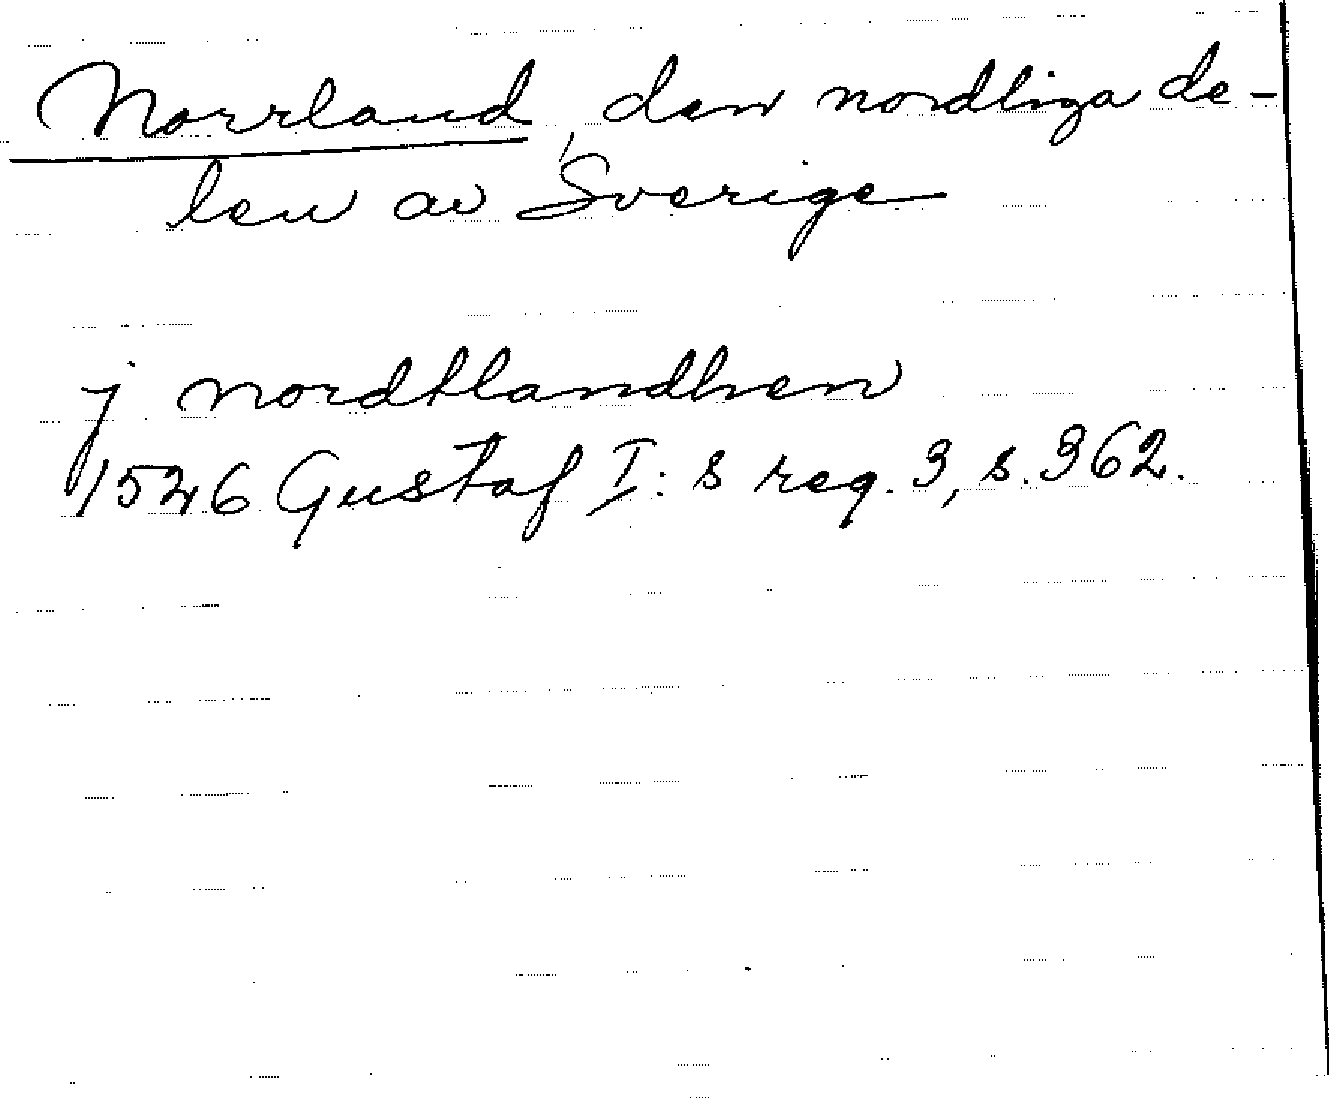 Norrland, den nordliga de-
len av Sverige
j nordhlandhen
1526 Gustaf I:s reg. 3, s. 362.